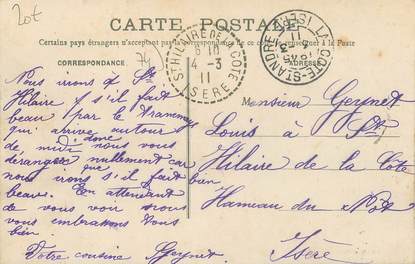 20€
CARTE POSTALE
Certains pays étrangers n'acceptent pas la correspondance de ce côté, se renseigner à la Poste
CORRESPONDANCE
ADRESSE
ST HILAIRE DE LA COTE
14-3
11
ISERE
LA COTE-ST-ANDRE (ISERE)
11
Nous irons à St
Hilaire s'il fait
beau par le tramway
qui arrive autour
de midi nous vous
derangez nullement car
nous irons que s'il fait bien
beau. En attendant
de vous voir nous
vous embrassons tous
bien.
Votre cousine Geynet
Monsieur Geynet
Louis à St
Hilaire de la Côte
Hameau du
Isère